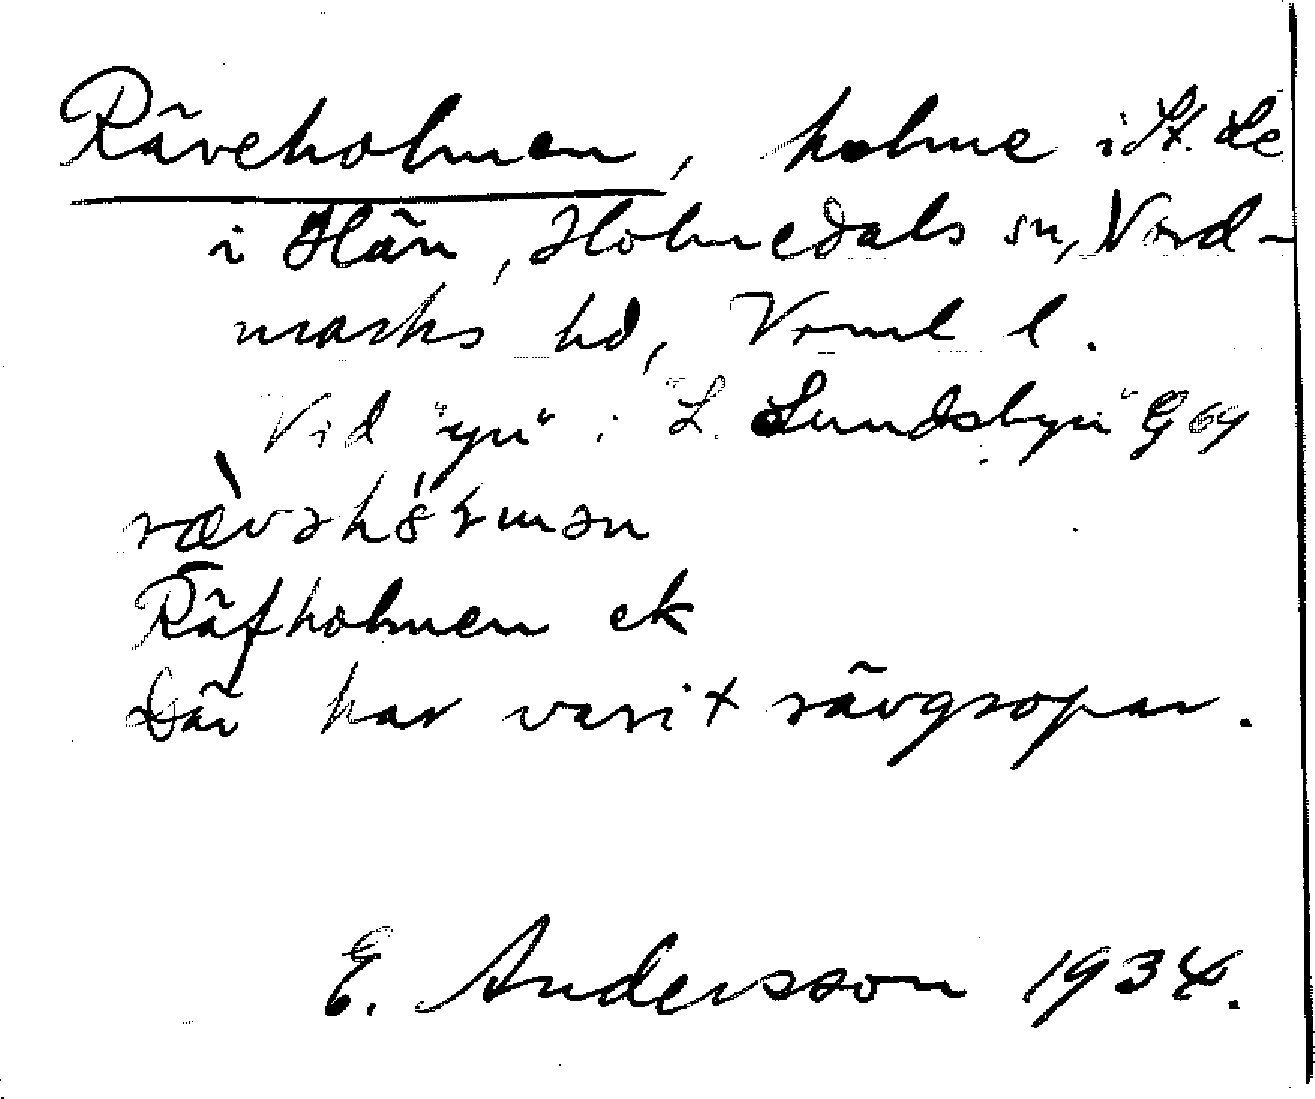 Räveholmen, holme i St. Le
i Hän, Holmedals sn, Nord-
marks hd, Vrml l.
Vid "yn" i "L. Lundsbyn" G 69
rævəhòɽmən
Räfholmen ek
Där har varit rävgropar.
E. Andersson 1934.